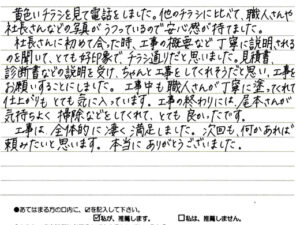 黄色いチラシを見て電話をしました。他のチラシに比べて、職人さんや
社長さんなどの写真がうつっているので安心感が持てました。
社長さんに初めて会った時、工事の概要など丁寧に説明される
のを聞いて、とても好印象でチラシ通りだと思いました。見積書、
診断書などの説明を受け、ちゃんと工事をしてくれそうだと思い、工事を
お願いすることにしました。工事中も職人さんが丁寧に塗ってくれて
仕上がりも とても気に入っています。工事の終わりには、尾本さんが
気持ちよく 掃除などをしてくれて、とても良かったです。
工事は、全体的に凄く満足しました。次回も、何かあれば
頼みたいと思います。本当にありがとうございました。
●あてはまる方の口内に、☑を記入して下さい。
☑私が、推薦します。 □私は、推薦しません。